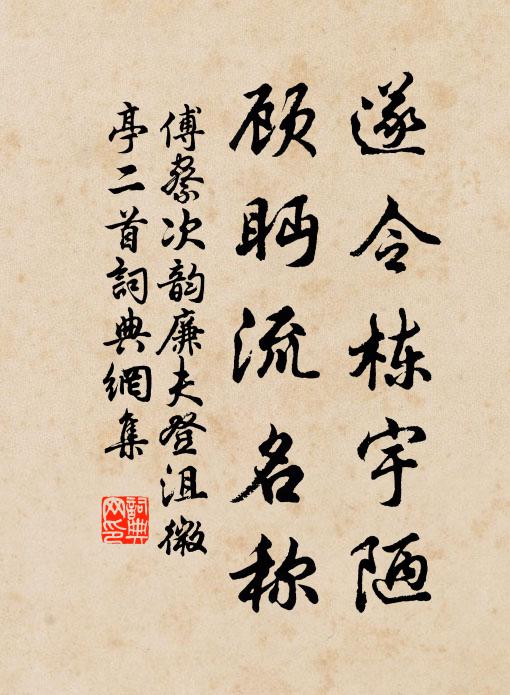 遂令栋宇陋
顾眄流名称
傅察次韵廉夫登沮漪
亭二首詞典網集
詞典
网印